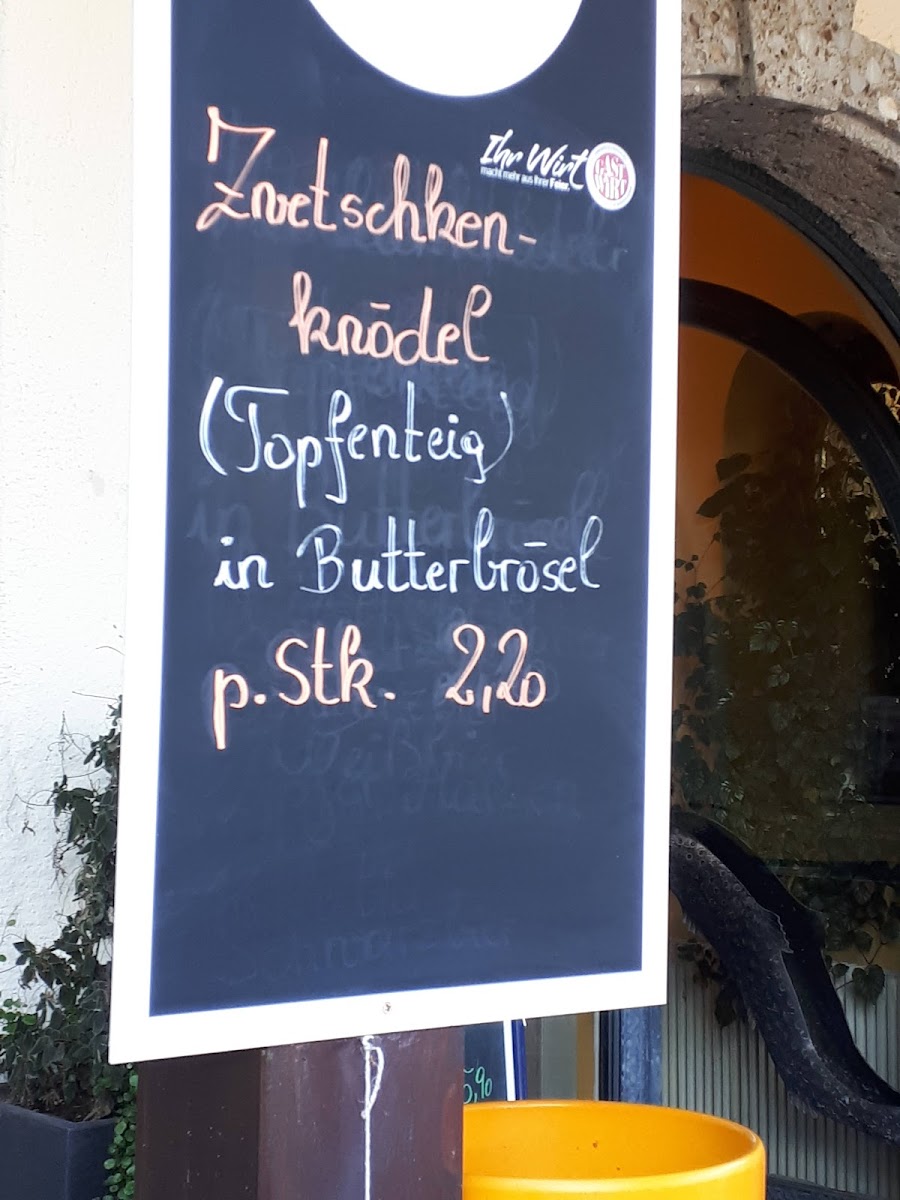 Ihr Wirt
macht mehr aus Ihrer Feier.
GAST
WIRT
Zwetschken-
knödel
(Topfenteig)
in Butterbrösel
p. Stk. 2,20
5,90